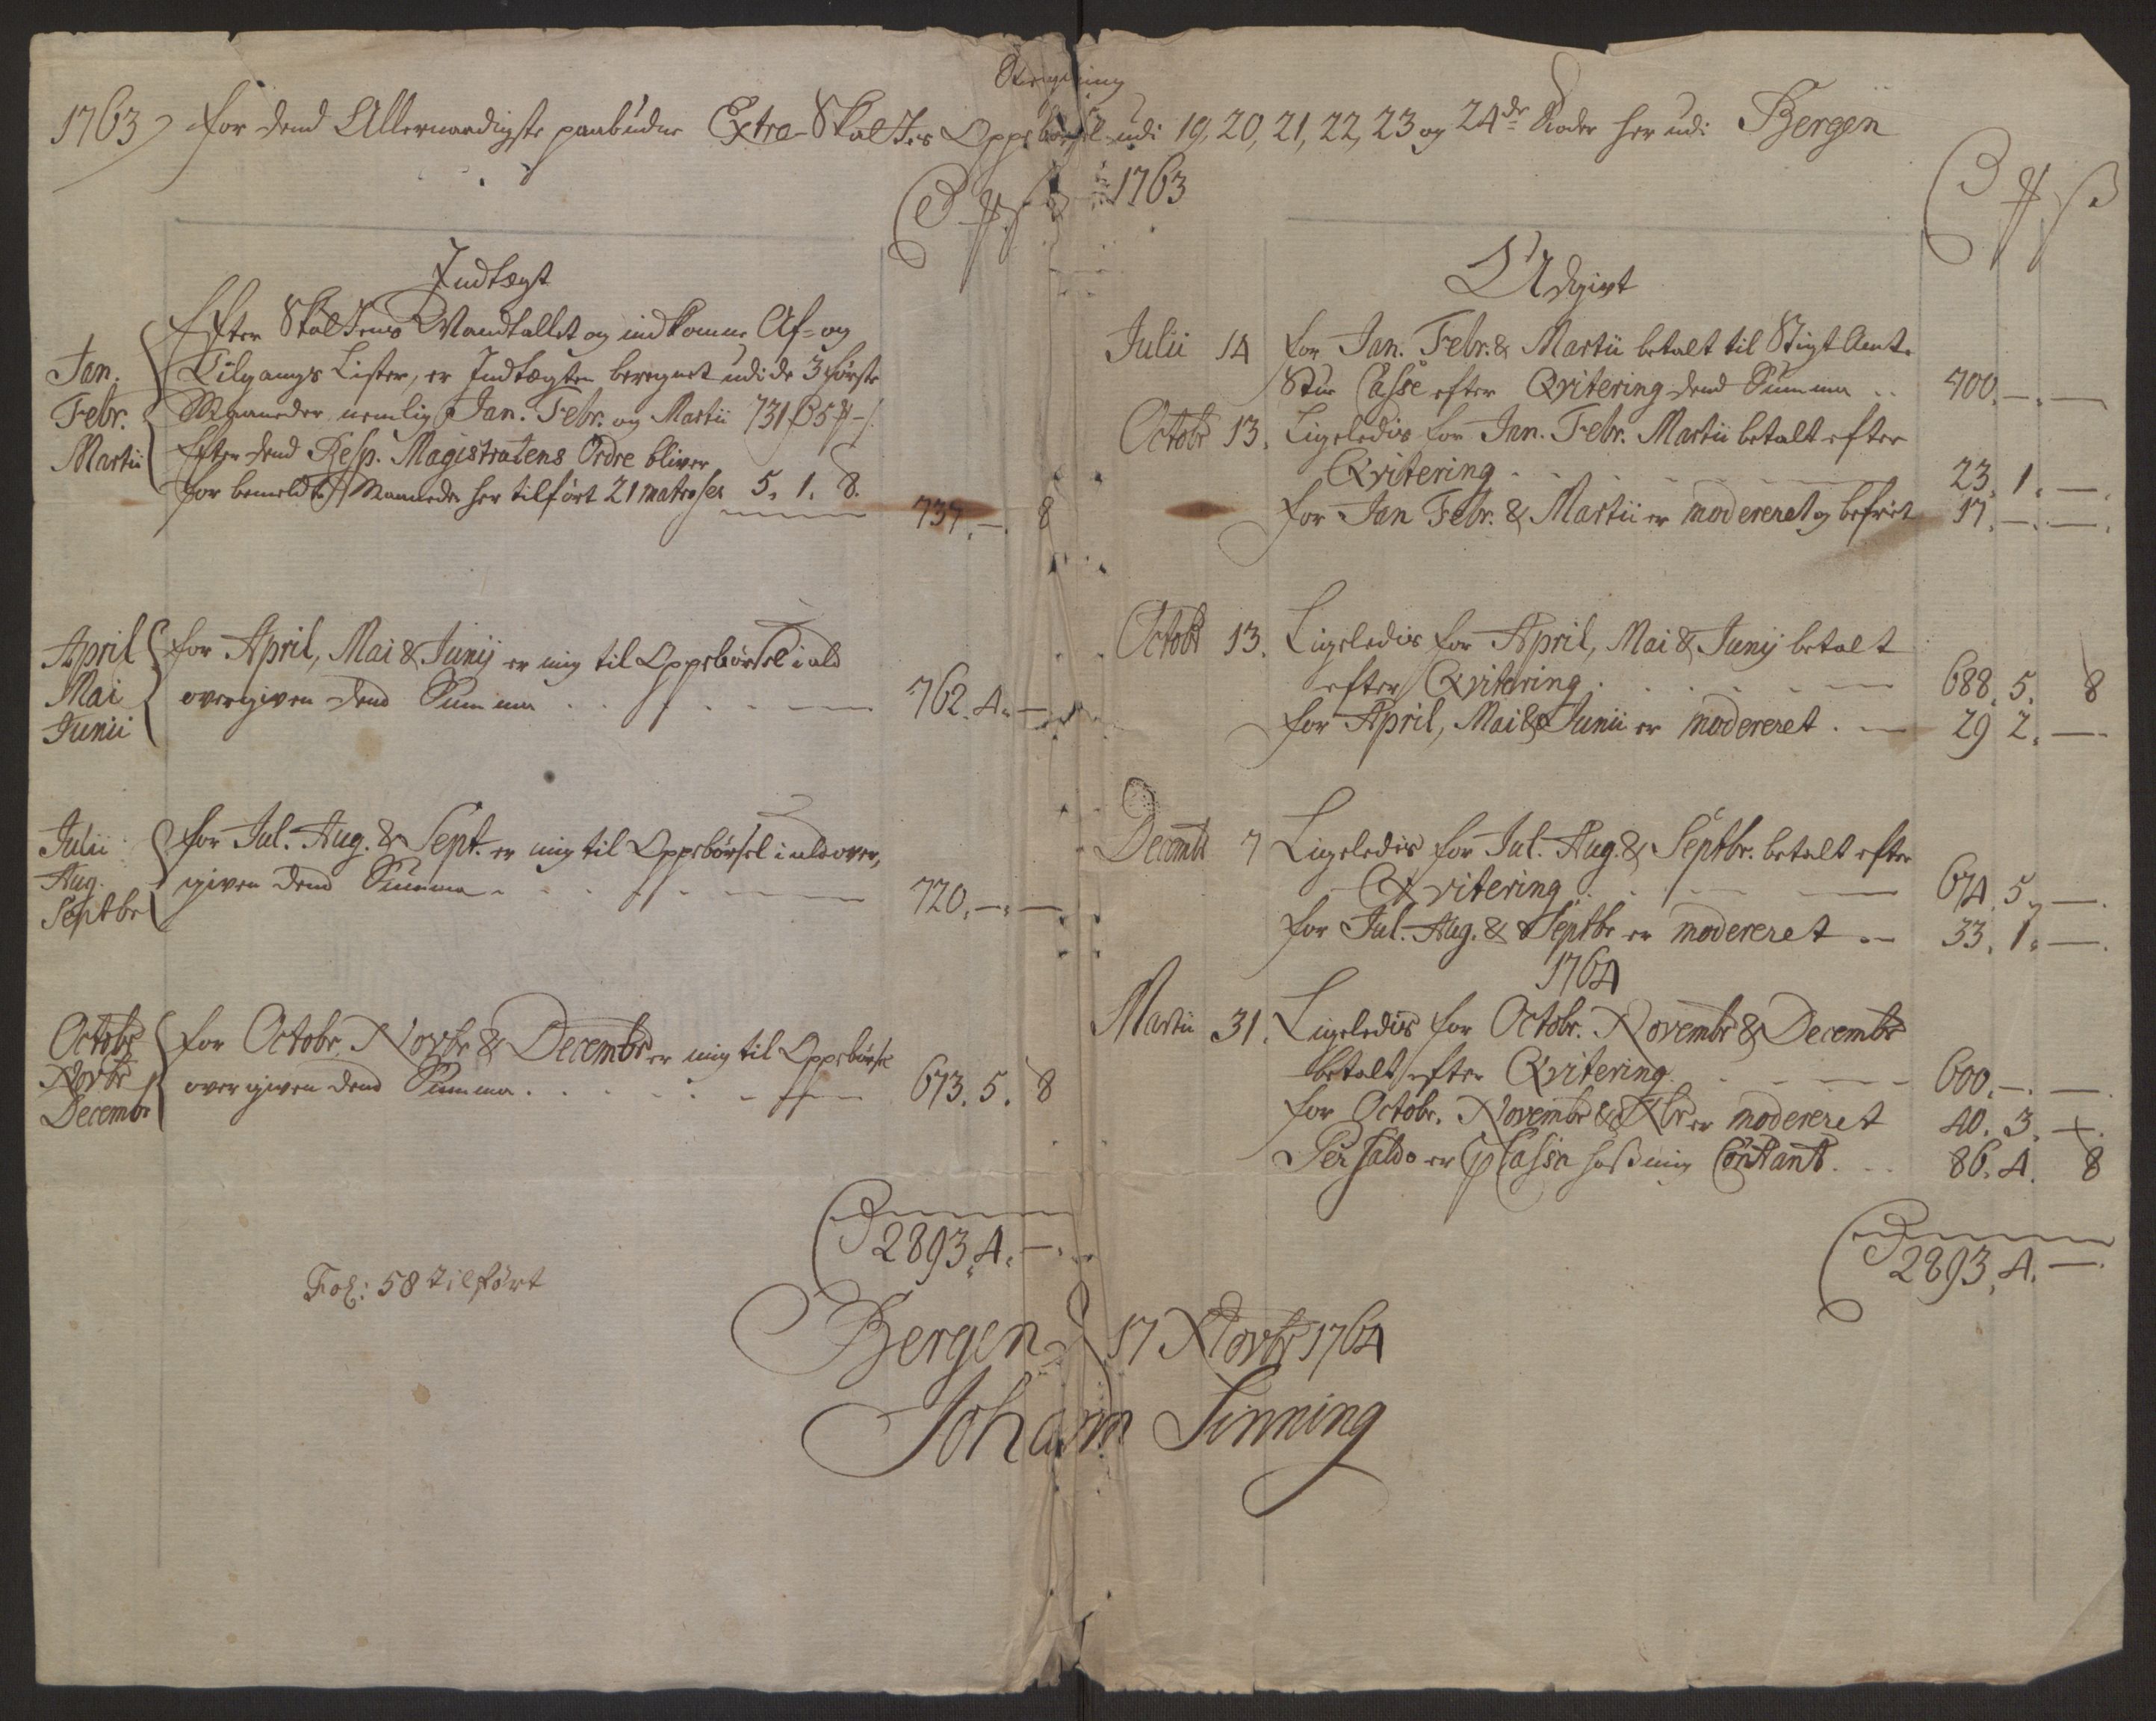 Regning
1763 for dend Allernaadigste paabudne Extra-Skattes Oppebørsel udi 19, 20, 21, 22, 23 og 24de Roder her udi Bergen
1763
Indtægt
Jan.
Febr.
Martii
Efter Skattens Mandtallet og indkomne Af- og
Tilgangs Lister, er Indtægten beregnet udi de 3 første
Maaneder nemlig Jan. Febr. og Martii 731 5 -
Efter dend Resp. Magistratens Ordre bliver
for bemeldte Maaneder her tilført 21 matroser 5. 1. 8.
737. —. 8
April
Mai
Junii
for April, Mai & Junij er mig til Oppebørsel i ald
overgiven dend Summa 762. 4. —
Julii
Aug.
Septbr
for Jul. Aug. & Sept. er mig til Oppebørsel i ald over,
given dend Summa 720. —. —
Octobr
Novbr
Decembr
for Octobr. Novbr & Decembr er mig til Oppebørsel
overgiven dend Summa 673. 5. 8
2893. 4. —.
Fol: 58 tilført
Udgivt
Julii 14 for Jan. Febr. & Martii betalt til Stigt Amt
Stue Casse efter Qvitering dend Summa 700. —. —
Octobr 13. Ligeledis for Jan. Febr. Martii betalt efter
Qvitering 23. 1. —.
for Jan Febr. & Martii er modereret og befriet 17. —. —.
Octobr 13. Ligeledis for April, Mai & Junij betalt
efter Qvitering 688. 5. 8
for April, Mai & Junii er modereret 29 2. —
Decembr 7 Ligeledis for Jul. Aug. & Septbr. betalt efter
Qvitering 674. 5. —.
for Jul. Aug. & Septbr er modereret 33. 1. —.
1764
Martii 31. Ligeledis for Octobr. Novembr & Decembr
betalt efter Qvitering 600. —. —.
for Octobr. Novembr & Xbr er modereret 40. 3. —.
Per Saldo er p Cassa hos mig Contant 86. 4. 8
2893. 4. —.
Bergen d 17 Novbr 1764
Johann Sinning